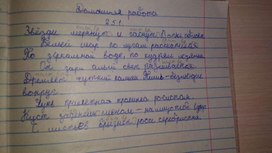 Домашняя работа
251
Звёзды меркнут и гаснут. В огне облака.
Белый пар по лугам расстилается
По зеркальной воде, по кудрям лозняка
От зари алый свет разливается.
Дремлет чуткий камыш. Тишь - безлюдье вокруг.
Чуть приметна тропинка росистая
Куст заденешь плечом - на лицо тебе вдруг
С листьев брызнет роса серебристая.